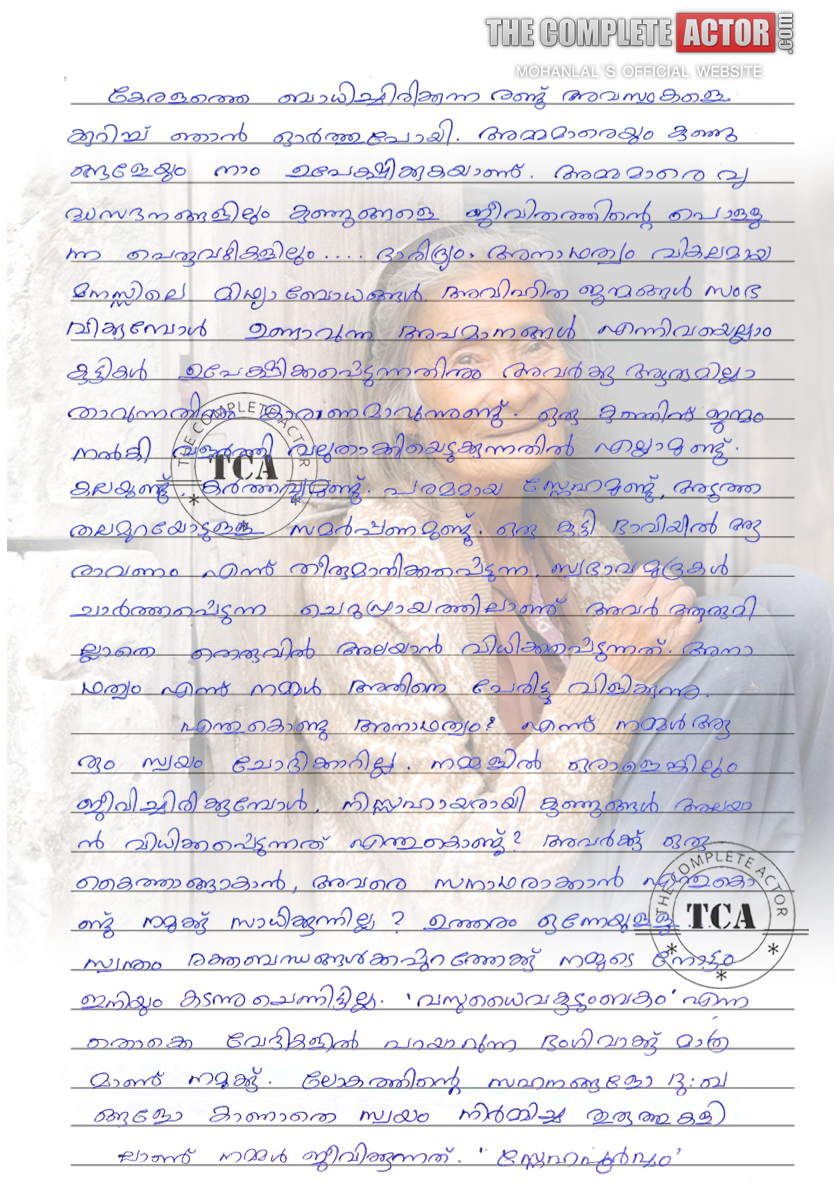 THE COMPLETE ACTOR.com
MOHANLAL'S OFFICIAL WEBSITE
കേരളത്തെ ബാധിച്ചിരിക്കുന്ന രണ്ടു അവസ്ഥകളെ
ക്കുറിച്ച് ഞാൻ ഓർത്തുപോയി. അമ്മമാരെയും കുഞ്ഞു
ങ്ങളേയും നാം ഉപേക്ഷിക്കുകയാണ്. അമ്മമാരെ വൃ
ദ്ധസദനങ്ങളിലും കുഞ്ഞുങ്ങളെ ജീവിതത്തിന്റെ പൊള്ളു
ന്ന പെരുവഴികളിലും.... ദാരിദ്ര്യം, അനാഥത്വം വികലമായ
മനസ്സിലെ മിഥ്യാബോധങ്ങൾ, അവിഹിത ജന്മങ്ങൾ സംഭ
വിക്കുമ്പോൾ ഉണ്ടാവുന്ന അപമാനങ്ങൾ എന്നിവയെല്ലാം
കുട്ടികൾ ഉപേക്ഷിക്കപ്പെടുന്നതിനും അവർക്കു ആരുമില്ലാ
താവുന്നതിനും കാരണമാവുന്നുണ്ട്. ഒരു കുഞ്ഞിന് ജന്മം
നൽകി വളർത്തി വലുതാക്കിയെടുക്കുന്നതിൽ എല്ലാമുണ്ട്.
കലയുണ്ട്, കർത്തവ്യമുണ്ട്. പരമമായ സ്നേഹമുണ്ട്, അടുത്ത
തലമുറയോടുള്ള സമർപ്പണമുണ്ട്. ഒരു കുട്ടി ഭാവിയിൽ ആ
രാവണം എന്ന് തീരുമാനിക്കപ്പെടുന്ന, സ്വഭാവമുദ്രകൾ
ചാർത്തപ്പെടുന്ന ചെറുപ്രായത്തിലാണ് അവർ ആരുമി
ല്ലാതെ തെരുവിൽ അലയാൻ വിധിക്കപ്പെടുന്നത്. അനാ
ഥത്വം എന്ന് നമ്മൾ അതിനെ പേരിട്ടു വിളിക്കുന്നു.
എന്തുകൊണ്ടു അനാഥത്വം? എന്ന് നമ്മൾ ആ
രും സ്വയം ചോദിക്കാറില്ല. നമ്മളിൽ ഒരാളെങ്കിലും
ജീവിച്ചിരിക്കുമ്പോൾ, നിസ്സഹായരായി കുഞ്ഞുങ്ങൾ അലയാ
ൻ വിധിക്കപ്പെടുന്നത് എന്തുകൊണ്ട്? അവർക്ക് ഒരു
കൈത്താങ്ങാകാൻ, അവരെ സനാഥരാക്കാൻ എന്തുകൊ
ണ്ടു നമുക്ക് സാധിക്കുന്നില്ല? ഉത്തരം ഒന്നേയുള്ളൂ
സ്വന്തം രക്തബന്ധങ്ങൾക്കപ്പുറത്തേക്ക് നമ്മുടെ നോട്ടം
ഇനിയും കടന്നുചെന്നിട്ടില്ല. 'വസുധൈവകുടുംബകം' എന്ന
തൊക്കെ വേദികളിൽ പറയാവുന്ന ഭംഗിവാക്ക് മാത്ര
മാണ് നമുക്ക്. ലോകത്തിന്റെ സഹനങ്ങളോ ദു:ഖ
ങ്ങളോ കാണാതെ സ്വയം നിർമ്മിച്ച തുരുത്തുകളി
ലാണ് നമ്മൾ ജീവിക്കുന്നത്. "സ്നേഹപൂർവ്വം"
THE COMPLETE ACTOR
TCA
THE COMPLETE ACTOR
TCA